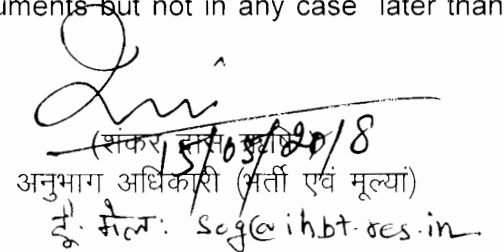 uments but not in any case later than
(शंकर
15/05/2018
अनुभाग अधिकारी (भर्ती एवं मूल्यां)
ई. मेल: scg@ihbt.res.in